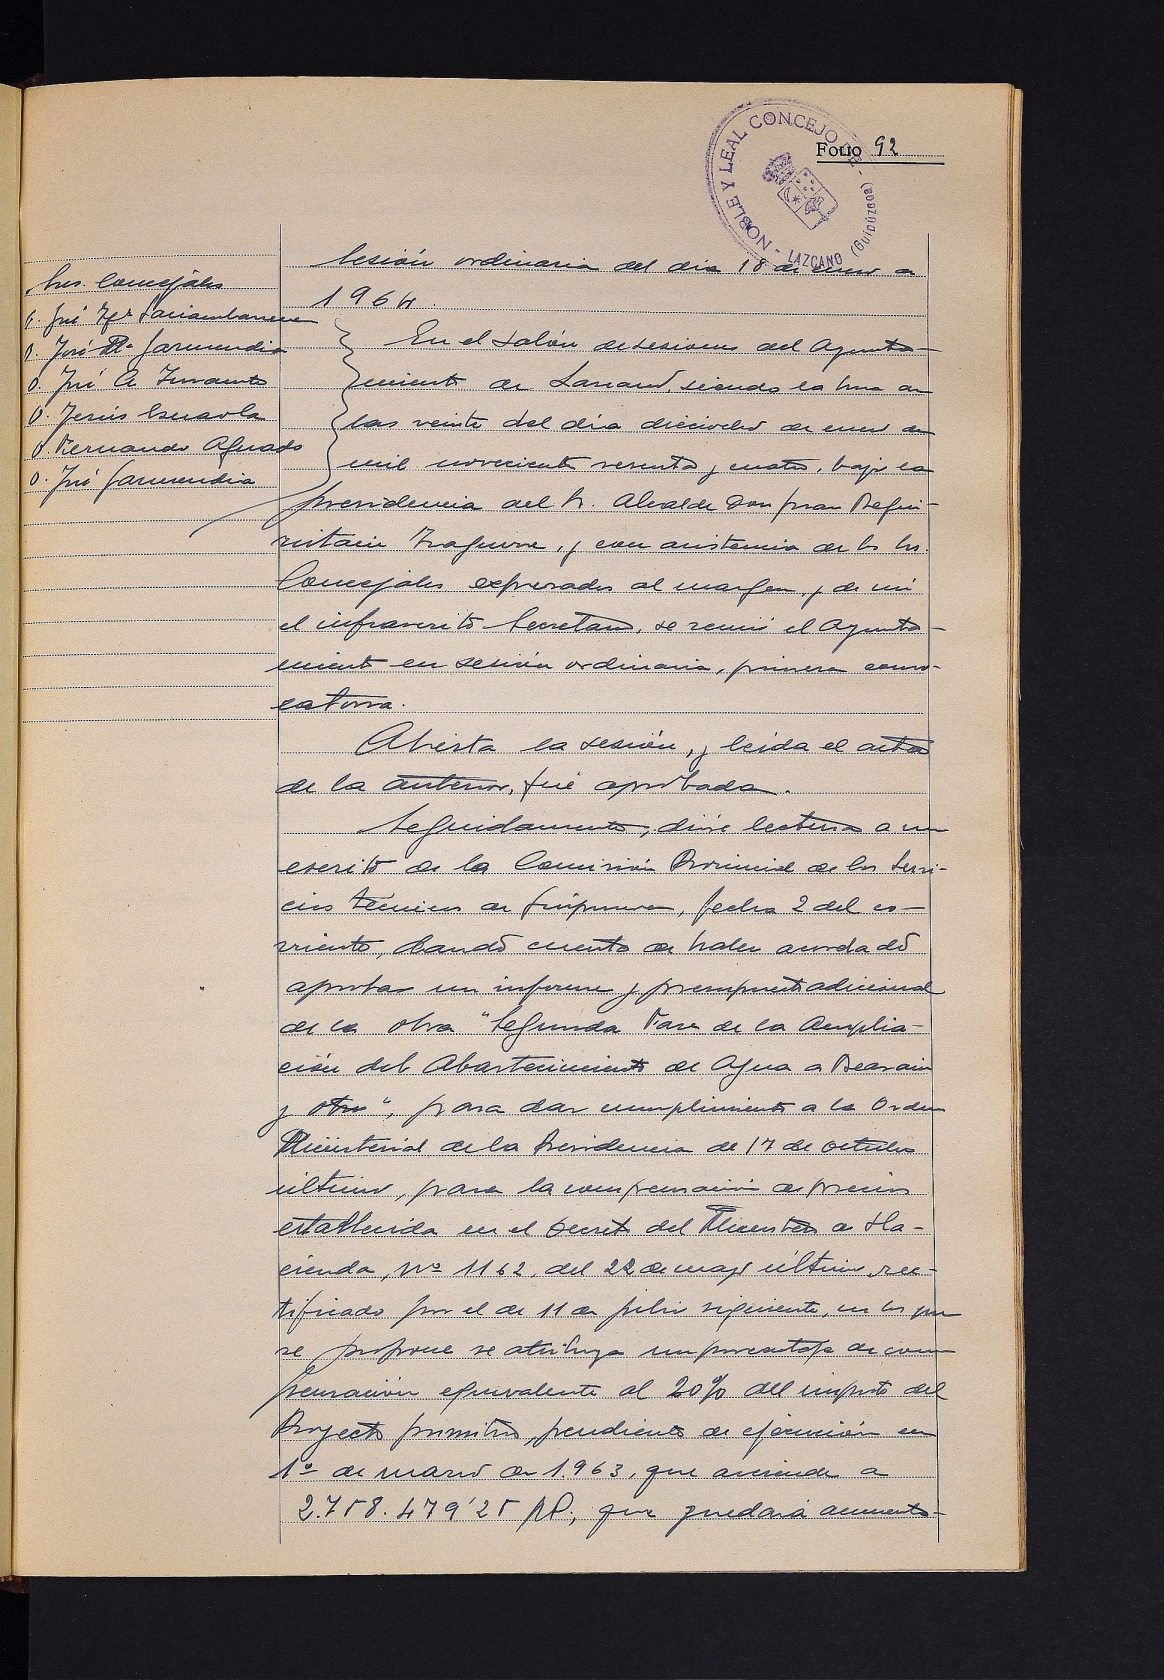 NOBLE Y LEAL CONCEJO DE - LAZCANO (Guipúzcoa)
Folio 92
Sres. Concejales
D. José Mª Garmendia
D. José A.
D. Jesús
D. Fernando Aguado
D. José Garmendia
Sesión ordinaria del dia 18 de enero de
1964.
En el Salón de sesiones del Ayunta-
miento de Lazcano, siendo la hora de
las veinte del día dieciocho de enero de
mil novecientos sesenta y cuatro, bajo la
presidencia del Sr. Alcalde Don Juan Begui-
ristain Izaguirre, y con asistencia de los Srs.
Concejales expresados al margen, y de mi
el infrascrito Secretario, se reunió el Ayunta-
miento en sesión ordinaria, primera convo-
catoria.
Abierta la sesión, y leida el acta
de la anterior, fué aprobada.
Seguidamente, dióse lectura a un
escrito de la Comisión Provincial de los Servi-
cios Técnicos de Guipuzcoa, fecha 2 del co-
rriente, dando cuenta de haber acordado
aprobar un informe y presupuesto adicional
de la obra "Segunda Fase de la Amplia-
ción del Abastecimiento de Agua a Beasain
y otros", para dar cumplimiento a la Orden
Ministerial de la Presidencia de 17 de octubre
último, para la compensación de precios
establecida en el Decreto del Ministerio de Ha-
cienda, nº 1162, del 22 de mayo último, rec-
tificado por el de 11 de julio siguiente, en los que
se propone se atribuya un porcentaje de com
pensación equivalente al 20% del importe del
Proyecto primitivo, pendiente de ejecución en
1º de marzo de 1.963, que asciende a
2.758.479'25 pts.; que quedará aumenta-